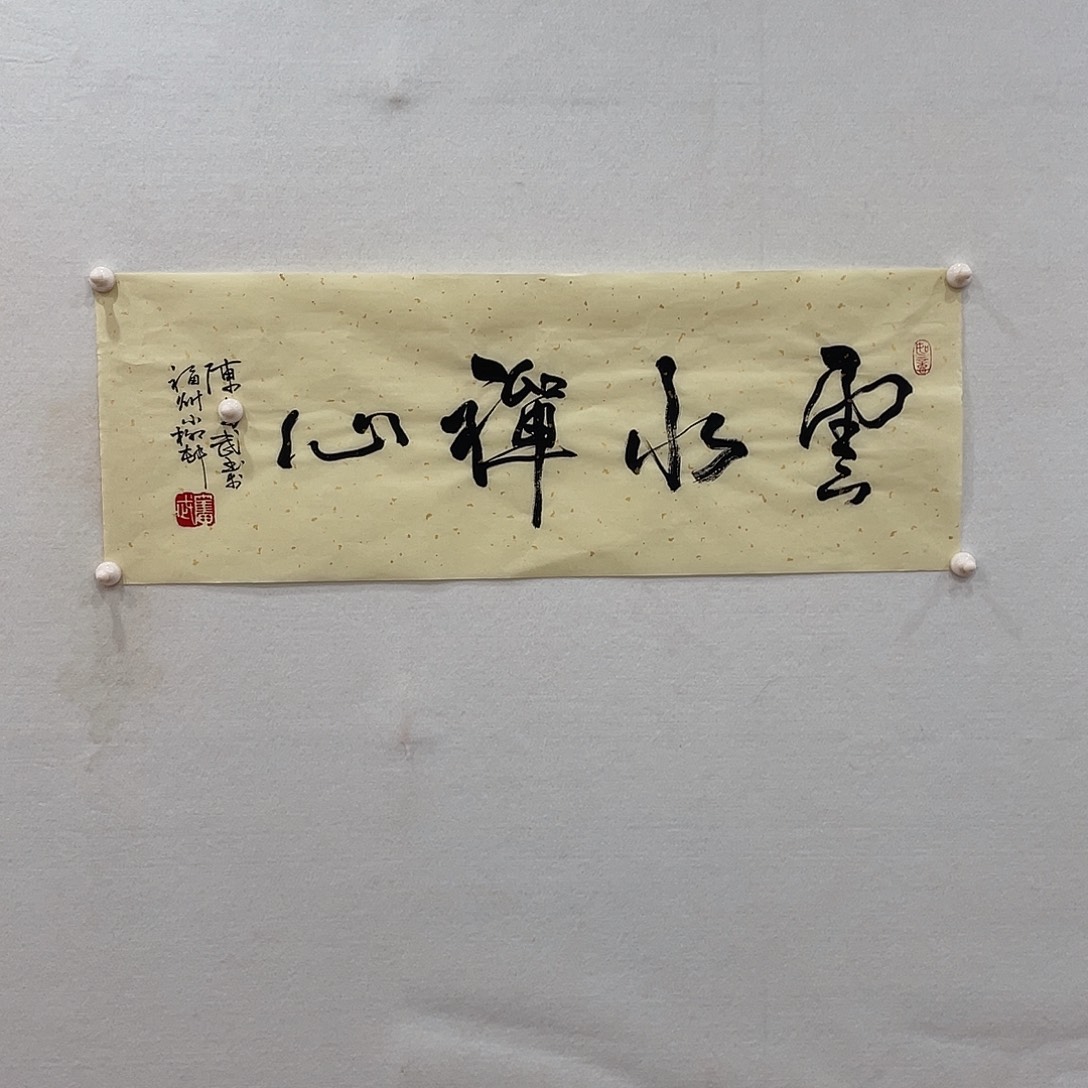 雲水禪心
陳武書於
福州小柳軒